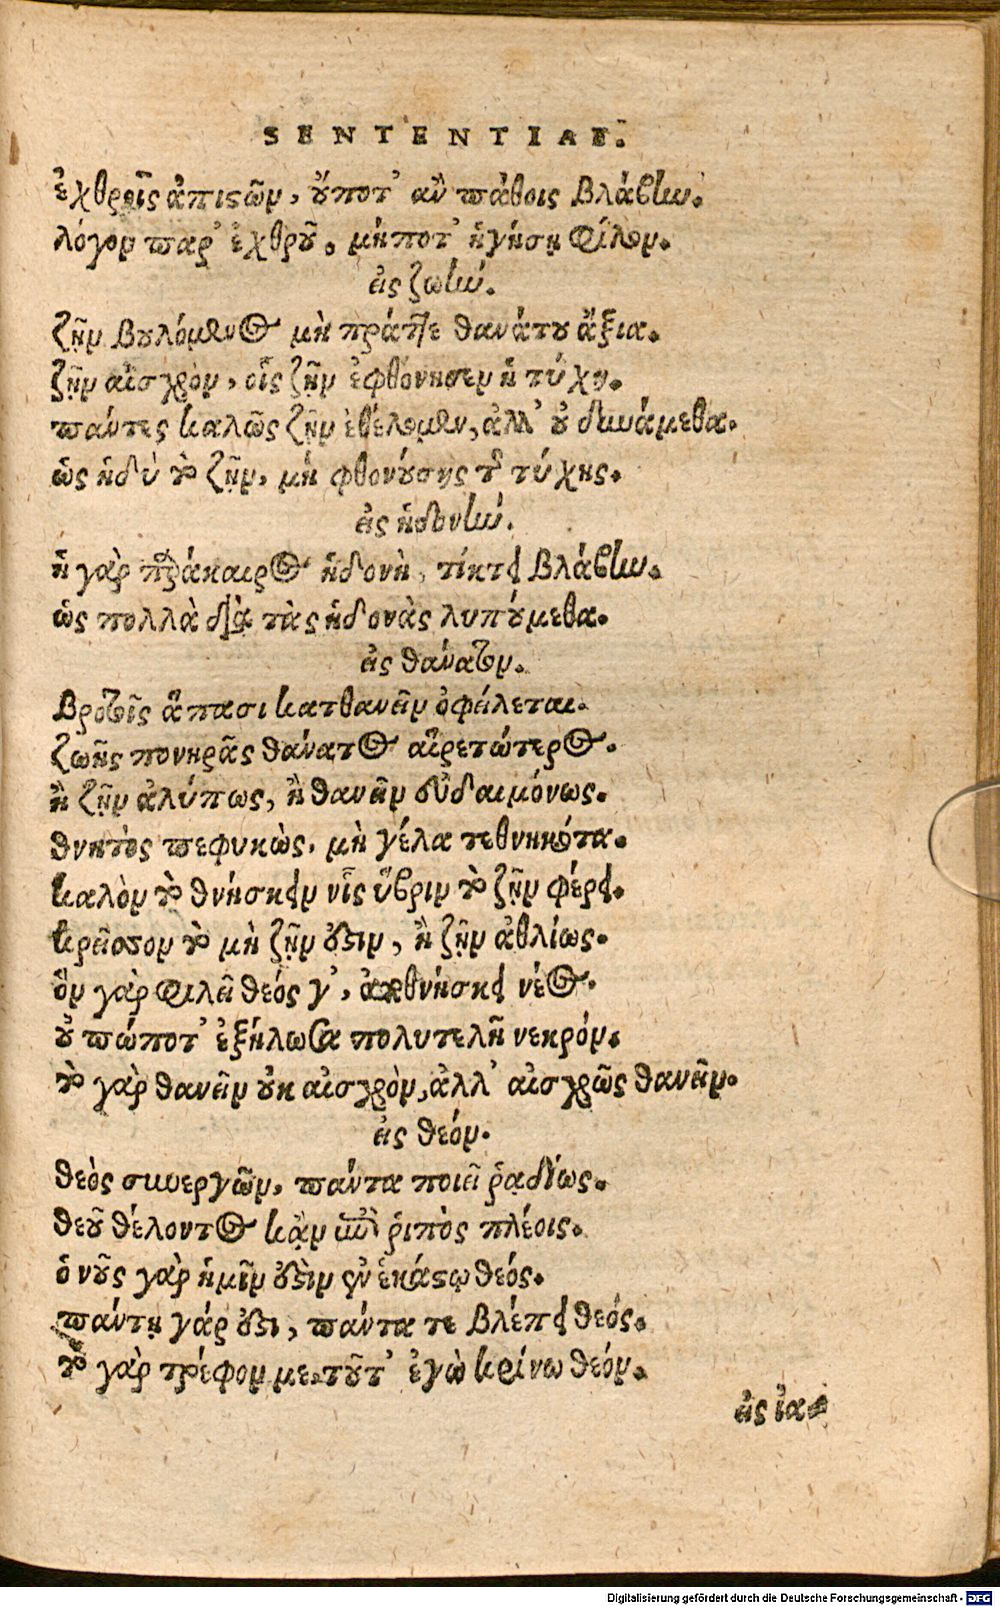 SENTENTIAE.
ἐχθροῖς ἀπιστῶν, οὔποτ᾽ ἂν πάθοις βλάβην.
λόγον παρ᾽ ἐχθροῦ, μήποτ᾽ ἡγήσῃ φίλον.
εἰς ζωήν.
ζῇν βουλόμενος μὴ πράττε θανάτου ἄξια.
ζῇν αἰσχρὸν, οἷς ζῇν ἐφθόνησεν ἡ τύχη.
πάντες καλῶς ζῇν ἐθέλομεν, ἀλλ᾽ οὐ δυνάμεθα.
ὡς ἡδὺ τὸ ζῇν, μὴ φθονούσης τῆς τύχης.
εἰς ἡδονήν.
ἡ γὰρ παράκαιρος ἡδονὴ, τίκτει βλάβην.
ὡς πολλὰ διὰ τὰς ἡδονὰς λυπούμεθα.
εἰς θάνατον.
βροτοῖς ἅπασι κατθανεῖν ὀφείλεται.
ζωῆς πονηρᾶς θάνατος αἱρετώτερος.
ἢ ζῇν ἀλύπως, ἢ θανεῖν εὐδαιμόνως.
θνητὸς πεφυκὼς, μὴ γέλα τεθνηκότα.
καλὸν τὸ θνήσκειν οἷς ὕβριν τὸ ζῇν φέρει.
κρεῖσσον τὸ μὴ ζῇν ἐστιν, ἢ ζῇν ἀθλίως.
ὃν γὰρ φιλεῖ θεός γ᾽, ἀποθνήσκει νέος.
οὐ πώποτ᾽ ἐζήλωσα πολυτελῆ νεκρόν.
τὸ γὰρ θανεῖν οὐκ αἰσχρὸν, ἀλλ᾽ αἰσχρῶς θανεῖν.
εἰς θεόν.
θεὸς συνεργῶν, πάντα ποιεῖ ῥᾳδίως.
θεοῦ θέλοντος κᾂν ἐπὶ ῥιπὸς πλέοις.
ὁ νοῦς γὰρ ἡμῖν ἐστὶν ἐν ἑκάστῳ θεός.
πάντῃ γάρ ἐστι, πάντα τε βλέπει θεός.
τὸ γὰρ τρέφον με, τοῦτ᾽ ἐγὼ κρίνω θεόν.
εἰς ἰα-
Digitalisierung gefördert durch die Deutsche Forschungsgemeinschaft - DFG